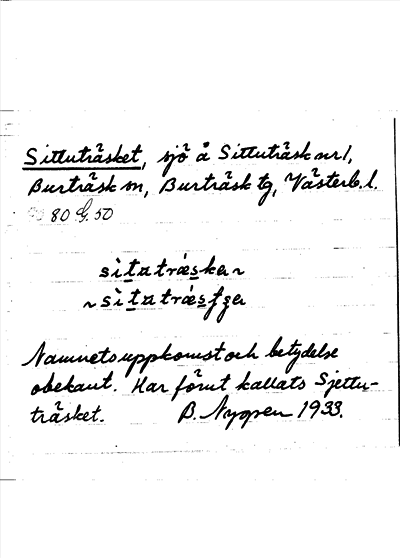 Sittuträsket, sjö å Sittuträsk nr 1,
Burträsk sn, Burträsk tg, Västerb. l.
80 G. 50
Namnets uppkomst och betydelse
obekant. Har förut kallats Sjettu-
träsket. B. Nygren 1933.